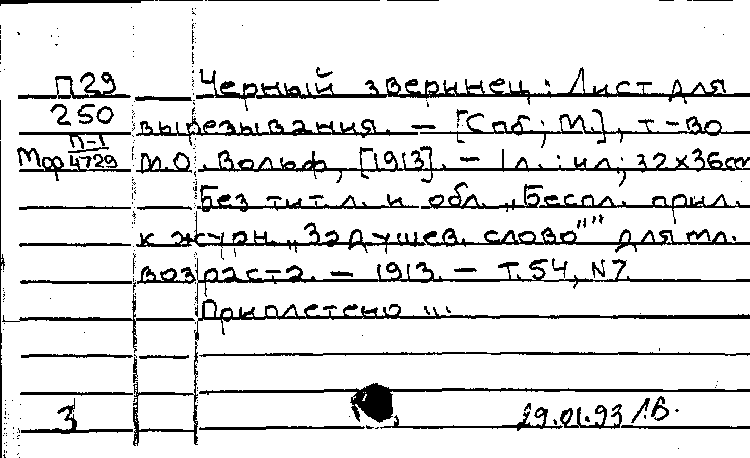 П29 Черный зверинец: Лист для
250 вырезывания. — [Спб; М.], т-во
Мф П-1/4729 М.О. Вольф, [1913]. — 1л.: ил.; 32х36см
Без тит.л. и обл. „Беспл. прил.
к журн. „Задушев. слово"" для мл.
возраста. — 1913. — Т.54, N7.
Приплетено ...
3 29.01.93 Л.В.